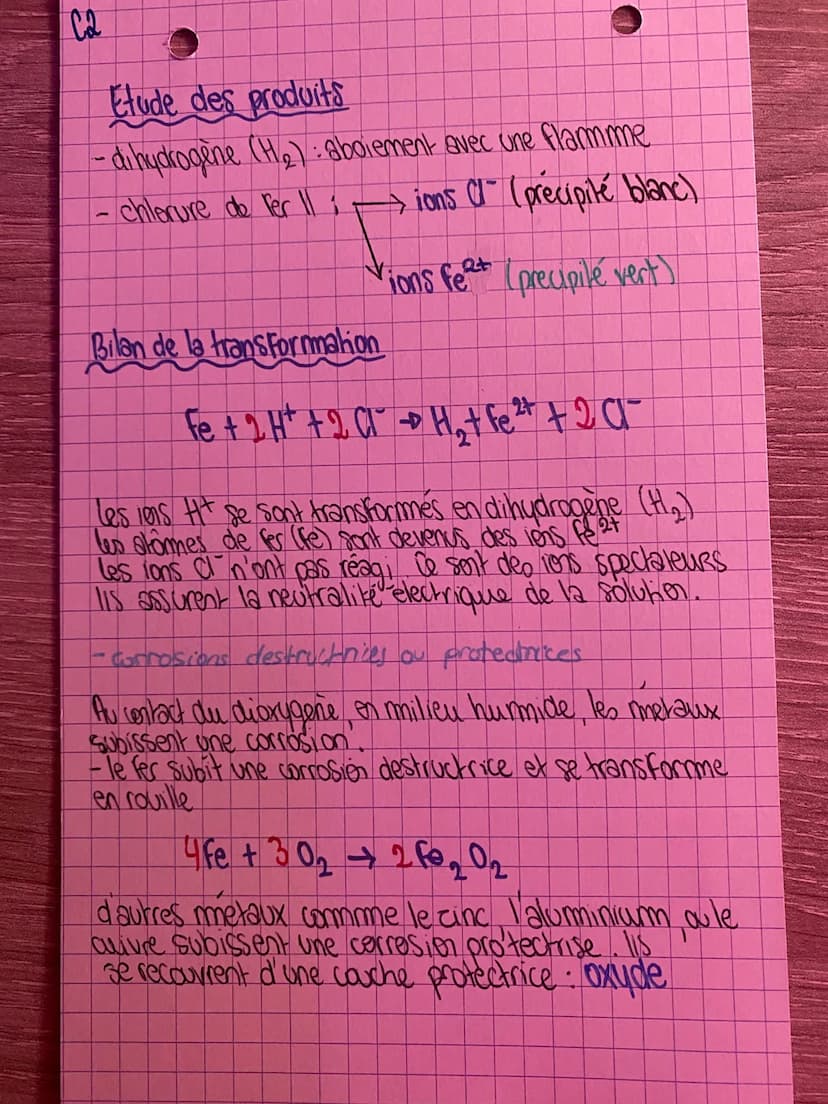 C2
Etude des produits
- dihydrogène (H₂) : aboiement avec une flamme
- chlorure de fer II : → ions Cl⁻ (précipité blanc)
ions Fe²⁺ (precipité vert)
Bilan de la transformation
Fe + 2 H⁺ + 2 Cl⁻ → H₂ + Fe²⁺ + 2 Cl⁻
Les ions H⁺ se sont transformés en dihydrogène (H₂)
les atômes de fer (Fe) sont devenus des ions Fe²⁺
Les ions Cl⁻ n'ont pas réagi. Ce sont des ions spectateurs
Ils assurent la neutralité électrique de la solution.
- corrosions destructrices ou protectrices
Au contact du dioxygène, en milieu humide, les métaux
subissent une corrosion.
- le fer subit une corrosion destructrice et se transforme
en rouille
4Fe + 3 O₂ → 2 Fe₂O₂
d'autres métaux comme le zinc, l'aluminium, ou le
cuivre subissent une corrosion protectrise. Ils
se recouvrent d'une couche protectrice : oxyde